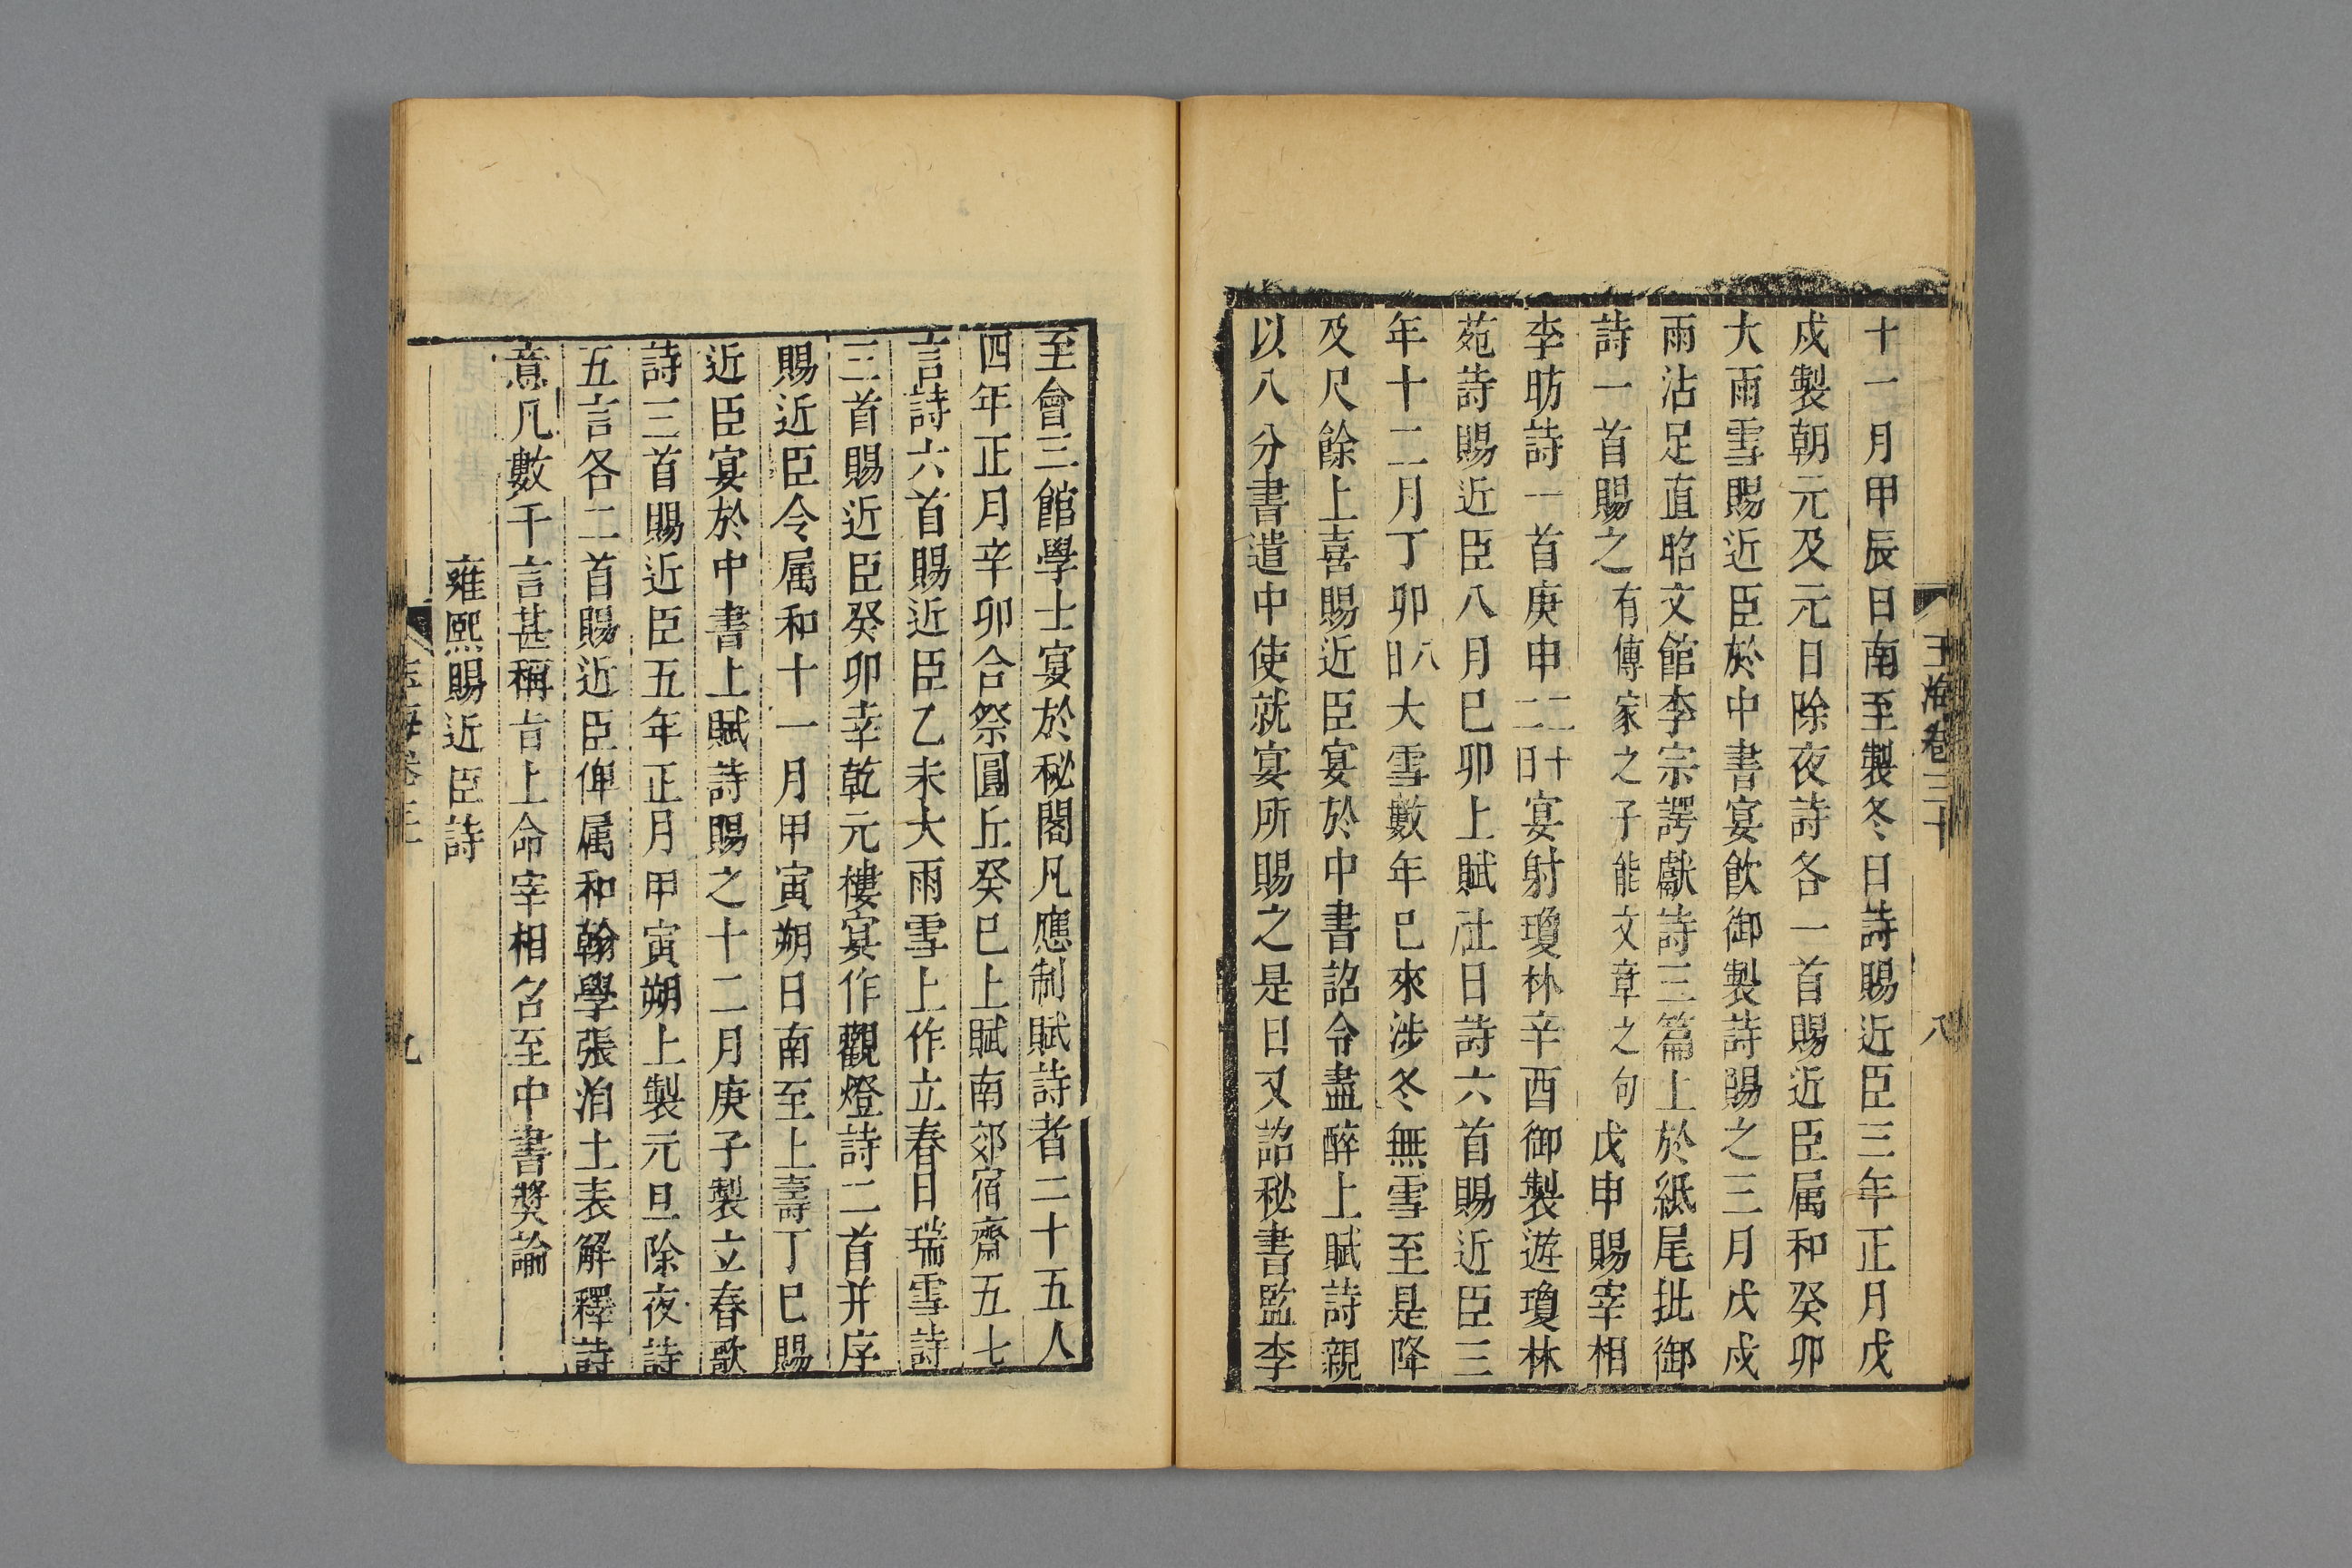 玉海卷三十
八
十一月甲辰日南至製冬日詩賜近臣三年正月戊
戍製朝元及元日除夜詩各一首賜近臣属和癸卯
大雨雪賜近臣於中書宴飲御製詩賜之三月戊戍
雨沾足直昭文館李宗諤獻詩三篇上於紙尾批御
詩一首賜之有傳家之子能文章之句戊申賜宰相
李昉詩一首庚申二十二日宴射瓊林辛酉御製遊瓊林
苑詩賜近臣八月巳卯上賦社日詩六首賜近臣三
年十二月丁卯八日大雪數年已來涉冬無雪至是降
及尺餘上喜賜近臣宴於中書詔令盡醉上賦詩親
以八分書遣中使就宴所賜之是日又詔秘書監李
至會三館學士宴於秘閣凡應制賦詩者二十五人
四年正月辛卯合祭圓丘癸巳上賦南郊宿齋五七
言詩六首賜近臣乙未大雨雪上作立春日瑞雪詩
三首賜近臣癸卯幸乾元樓宴作觀燈詩二首并序
賜近臣令属和十一月甲寅朔日南至上壽丁巳賜
近臣宴於中書上賦詩賜之十二月庚子製立春歌
詩三首賜近臣五年正月甲寅朔上製元旦除夜詩
五言各二首賜近臣俾属和翰學張洎上表解釋詩
意凡數千言甚稱旨上命宰相召至中書獎諭
雍熙賜近臣詩
九